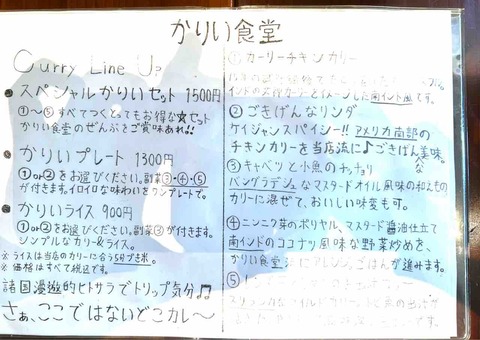 かりい食堂
Curry Line Up
スペシャルかりいセット 1500円
①〜⑤すべてつくとってもお得な☆セット
かりい食堂のぜんぶをご賞味あれ!!
かりいプレート 1300円
①or②をお選びください。副菜③・④・⑤
が付きます。イロイロな味わいをワンプレートで。
かりいライス 900円
①or②をお選びください。副菜③が付きます。
シンプルなカリー&ライス。
※ライスは当店のカリーに合う5分づき米。
※価格はすべて税込です。
諸国漫遊的ヒトサラでトリップ気分♫
さぁ、ここではないどこカレ〜
① カーリーチキンカリー
インドの
カリーをイメージした南インド風です。
② ごきげんなリンダ
ケイジャンスパイシー!! アメリカ南部の
チキンカリーを当店流に♪ごきげんな美味。
③ キャベツと小魚の
バングラデシュなマスタードオイル風味の和えもの
カリーに混ぜて、おいしい味変も可。
④ ニンニク芽のポリヤル、マスタード醤油仕立て
南インドのココナツ風味な野菜炒めを、
かりい食堂
にアレンジ。ごはんが進みます。
⑤